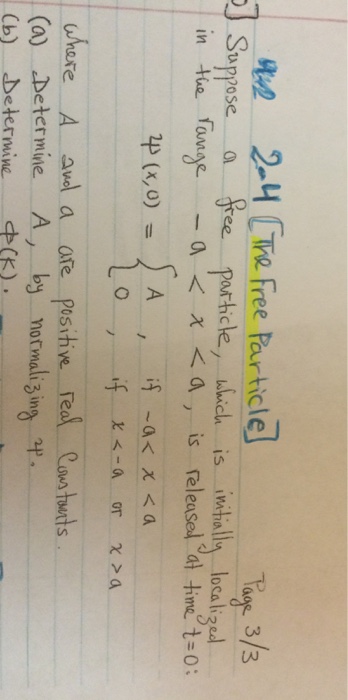 2-4 [The Free Particle]
Page 3/3
] Suppose a free particle, which is initially localized
in the range -a < x < a, is released at time t=0:
ψ(x,0) = { A , if -a < x < a
0 , if x < -a or x > a
where A and a are positive real constants.
(a) Determine A, by normalizing ψ.
(b) Determine φ(k).